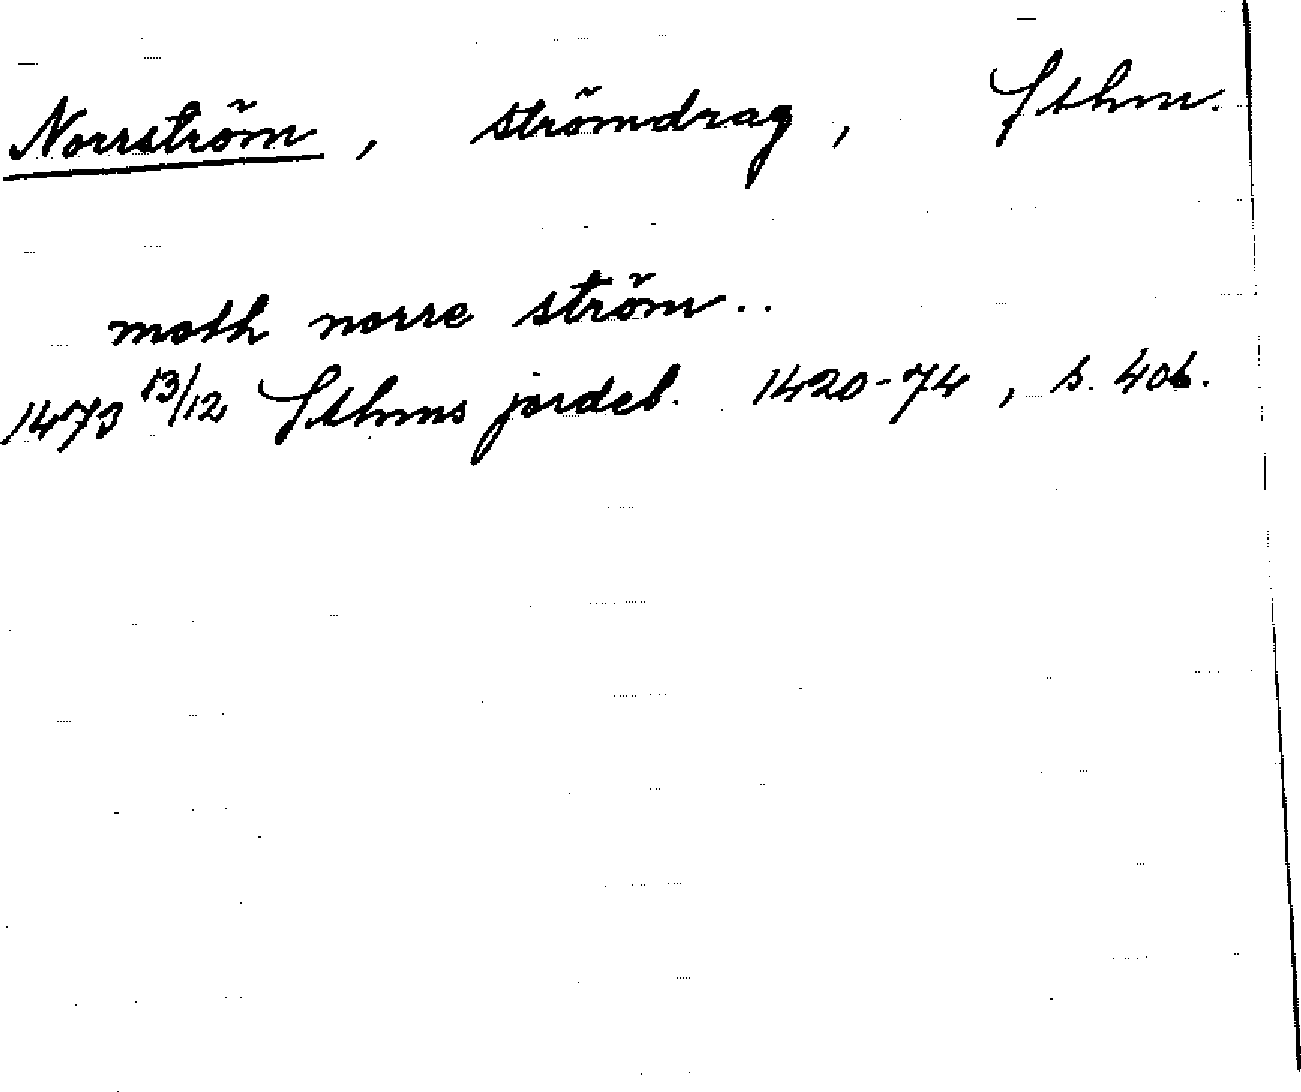 Norrström, strömdrag, Sthm.
moth norre ström..
1473 13/12 Sthms jordeb. 1420-74, s. 406.